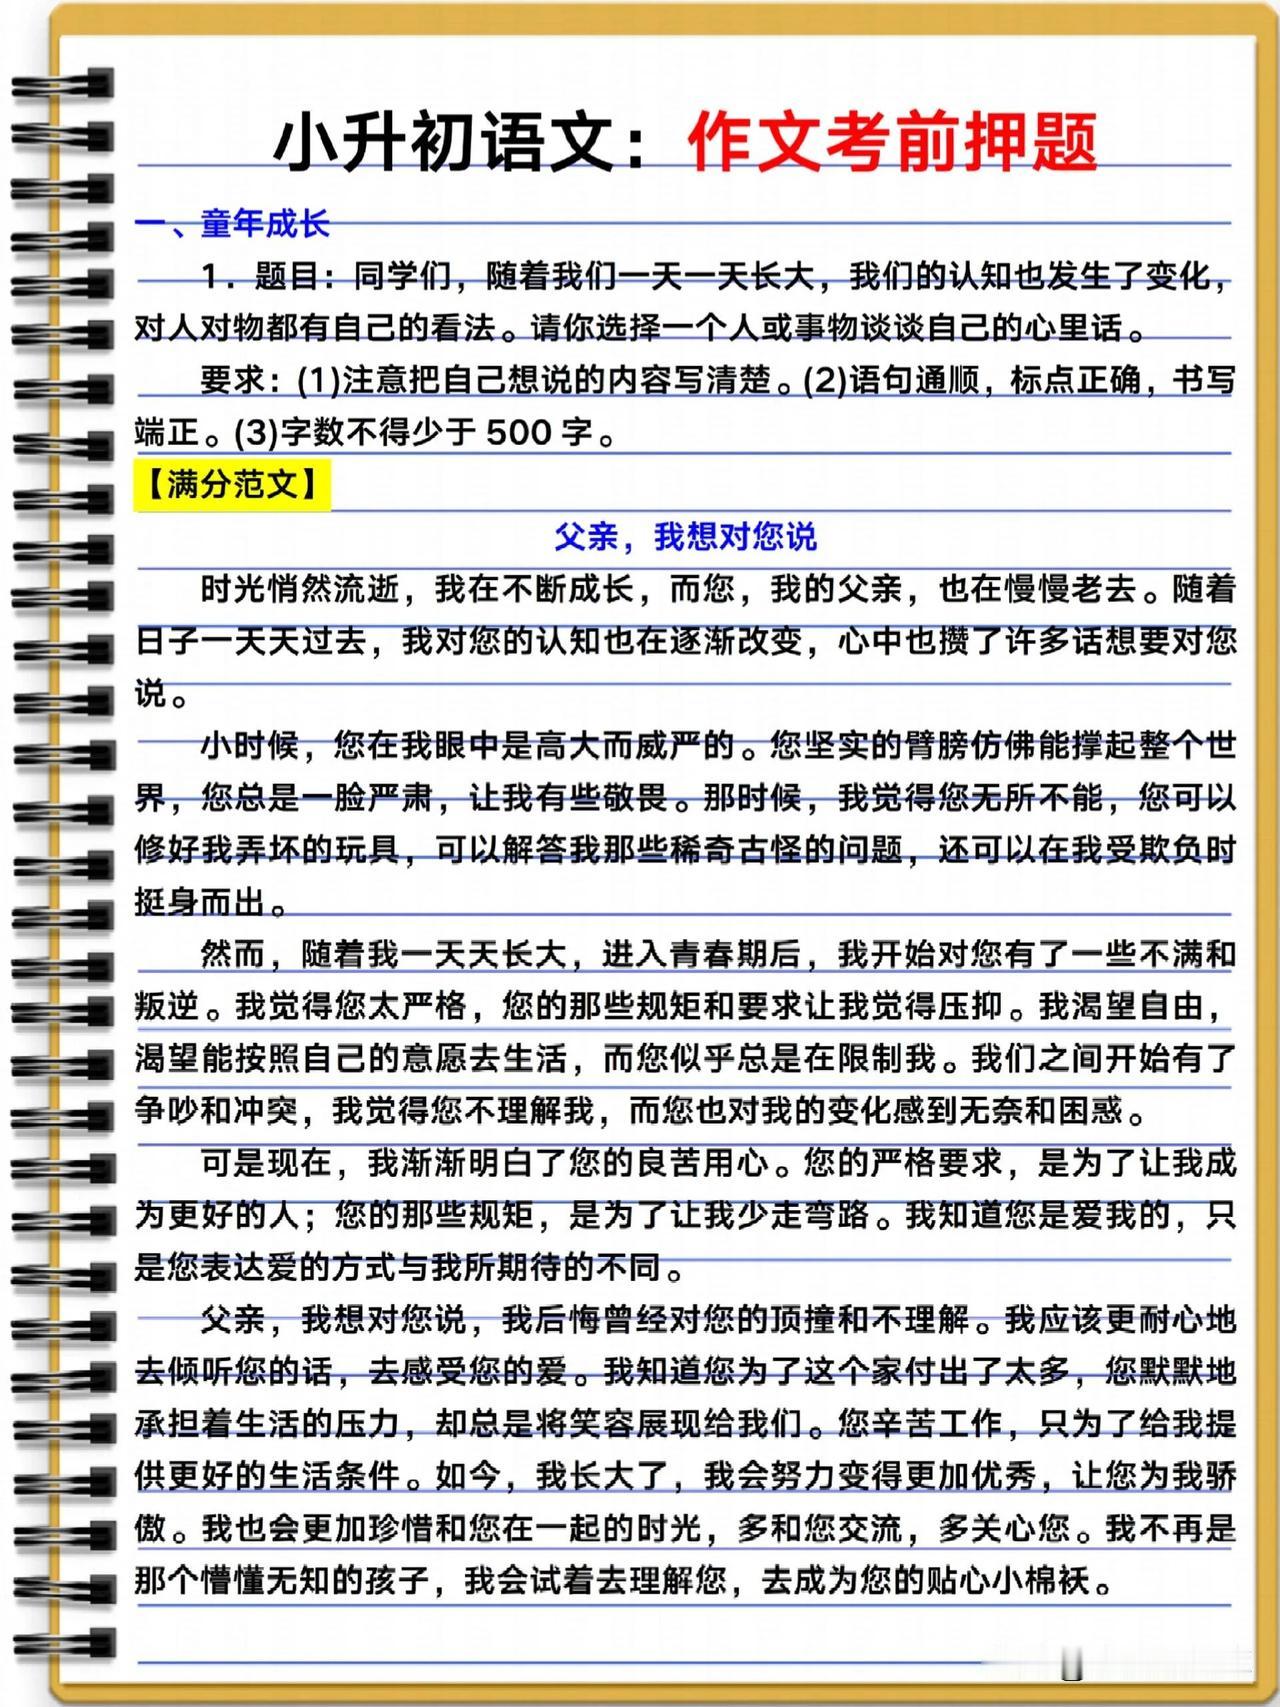 小升初语文：作文考前押题
一、童年成长
1．题目：同学们，随着我们一天一天长大，我们的认知也发生了变化，
对人对物都有自己的看法。请你选择一个人或事物谈谈自己的心里话。
要求：(1)注意把自己想说的内容写清楚。(2)语句通顺，标点正确，书写
端正。(3)字数不得少于 500 字。
【满分范文】
父亲，我想对您说
时光悄然流逝，我在不断成长，而您，我的父亲，也在慢慢老去。随着
日子一天天过去，我对您的认知也在逐渐改变，心中也攒了许多话想要对您
说。
小时候，您在我眼中是高大而威严的。您坚实的臂膀仿佛能撑起整个世
界，您总是一脸严肃，让我有些敬畏。那时候，我觉得您无所不能，您可以
修好我弄坏的玩具，可以解答我那些稀奇古怪的问题，还可以在我受欺负时
挺身而出。
然而，随着我一天天长大，进入青春期后，我开始对您有了一些不满和
叛逆。我觉得您太严格，您的那些规矩和要求让我觉得压抑。我渴望自由，
渴望能按照自己的意愿去生活，而您似乎总是在限制我。我们之间开始有了
争吵和冲突，我觉得您不理解我，而您也对我的变化感到无奈和困惑。
可是现在，我渐渐明白了您的良苦用心。您的严格要求，是为了让我成
为更好的人；您的那些规矩，是为了让我少走弯路。我知道您是爱我的，只
是您表达爱的方式与我所期待的不同。
父亲，我想对您说，我后悔曾经对您的顶撞和不理解。我应该更耐心地
去倾听您的话，去感受您的爱。我知道您为了这个家付出了太多，您默默地
承担着生活的压力，却总是将笑容展现给我们。您辛苦工作，只为了给我提
供更好的生活条件。如今，我长大了，我会努力变得更加优秀，让您为我骄
傲。我也会更加珍惜和您在一起的时光，多和您交流，多关心您。我不再是
那个懵懂无知的孩子，我会试着去理解您，去成为您的贴心小棉袄。